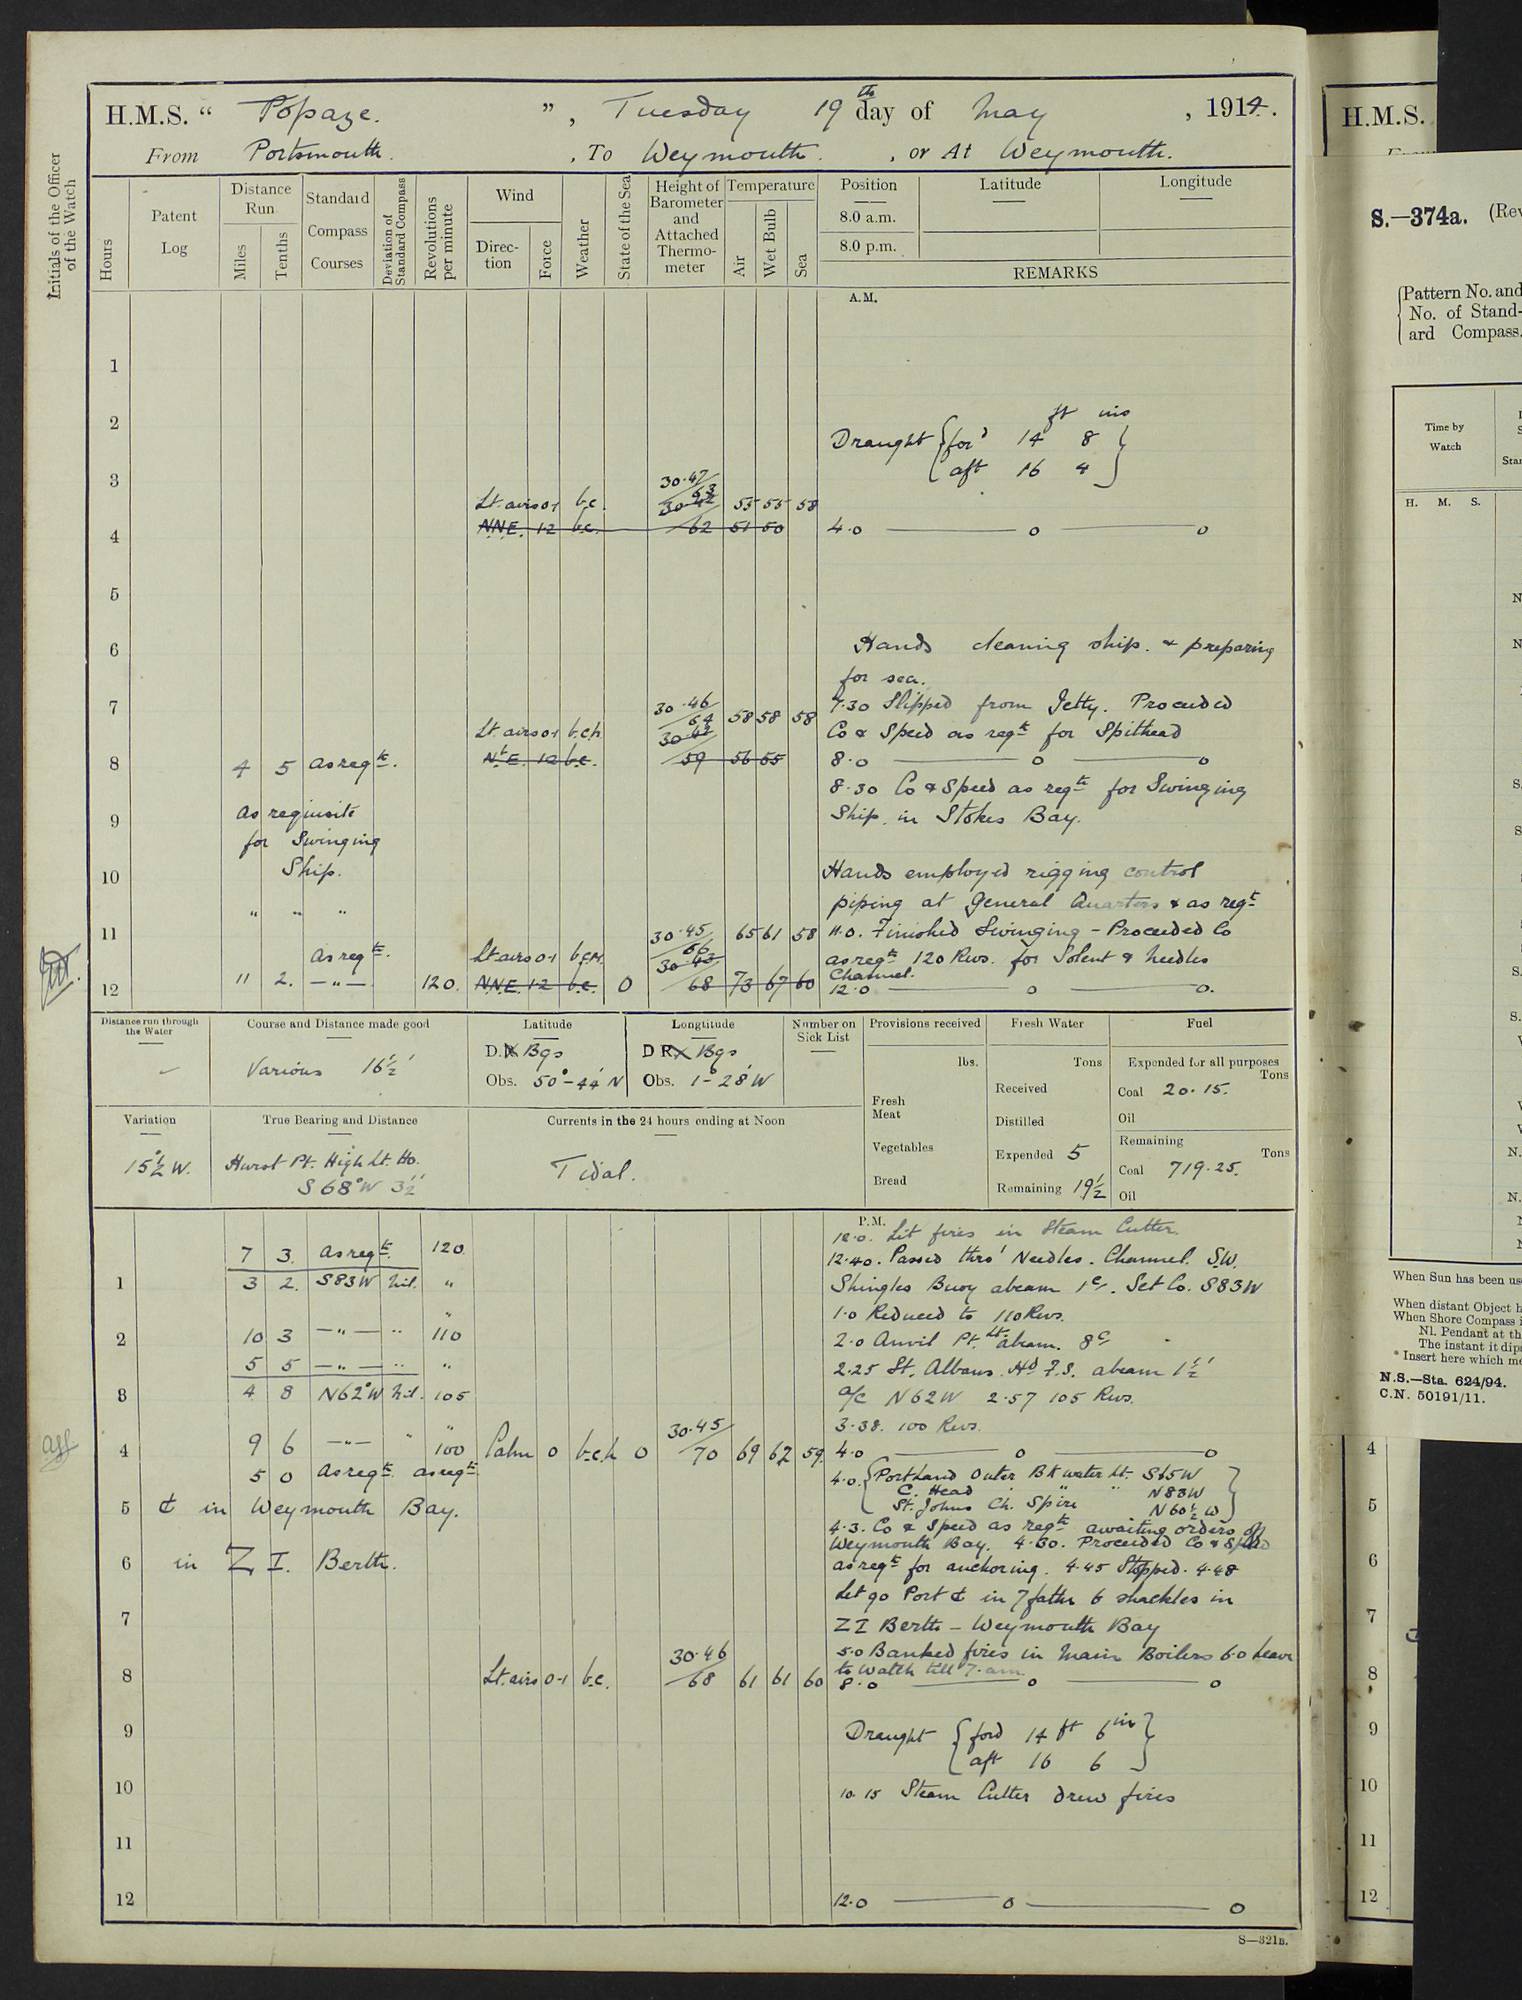 H.M.S. “ Topaze. ”, Tuesday 19th day of May , 1914.
From Portsmouth. , To Weymouth. , or At Weymouth.
Initials of the Officer of the Watch
Hours
Patent Log
Distance Run
Miles
Tenths
Standard Compass Courses
Deviation of Standard Compass
Revolutions per minute
Wind
Direc-tion
Force
Weather
State of the Sea
Height of Barometer and Attached Thermo-meter
Temperature
Air
Wet Bulb
Sea
Position Latitude Longitude
8.0 a.m.
8.0 p.m.
REMARKS
A.M.
1
2
ft ins
Draught { for'd 14 8 }
{ aft 16 4 }
3
30.47
63
Lt. airs 0-1 b.c. 30.42 55 55 58
4 NNE. 1-2 b.c. 62 51 50 4.0 —— o —— o
5
6
Hands cleaning ship. & preparing
for sea.
7
30.46
64 58 58 58
7.30 Slipped from Jetty. Proceeded
Lt. airs 0-1 b.c.h 30.43 Co & Speed as reqte for Spithead
8 4 5 As reqte. N'E. 1-2 b.c. 59 56 55 8.0 —— o —— o
8.30 Co & Speed as reqte for Swinging
9 As requisite Ship. in Stokes Bay.
for Swinging
10 Ship. Hands employed rigging control
piping at General Quarters & as reqte
" " "
11
30.45 65 61 58 11.0. Finished Swinging – Proceeded Co
66
As reqte. Lt airs 0-1 b.c.m. 30.43 as reqte 120 Revs. for Solent & Needles
Channel.
12 11 2. –"– 120. NNE. 1-2 b.c. 0 68 73 67 60 12.0 —— o —— o.
Distance run through the Water
Course and Distance made good
Various 16½'
Latitude
D.R. Bgs
Obs. 50°-44' N
Longtitude
D R. Bgs
Obs. 1°-28' W
Number on Sick List
Provisions received
lbs.
Fresh Meat
Vegetables
Bread
Fresh Water
Tons
Received
Distilled
Expended 5
Remaining 19½
Fuel
Expended for all purposes
Tons
Coal 20.15.
Oil
Remaining
Tons
Coal 719.25.
Oil
Variation
15½° W.
True Bearing and Distance
Hurst Pt. High Lt. Ho.
S 68° W 3½'
Currents in the 24 hours ending at Noon
Tidal.
P.M.
12.0. Lit fires in Steam Cutter.
7 3. As reqte. 120. 12.40. Passed thro' Needles. Channel. S.W.
1 3 2. S83W Nil. " Shingles Buoy abeam 1c. Set Co. S83W
" 1.0 Reduced to 110 Revs.
2 10 3 –"– " 110 2.0 Anvil Pt. Lt. abeam. 8c
5 5 –"– " " 2.25 St. Albans. Hd F.S. abeam 1½'
3 4 8 N62°W Nil. 105 a/c N62W 2.57 105 Revs.
" 3.38. 100 Revs.
30.45
4 9 6 –"– " 100 Calm 0 b.c.h 0 70 69 62 59. 4.0 —— o —— o
5 0 As reqte. as reqte 4.0. { Portland Outer Bk water Lt. S65W
C. Head " " N83W
5 ⚓ in Weymouth Bay. St. Johns Ch. Spire N60½W }
4.3. Co & Speed as reqte awaiting orders off
6 in Z I. Berth. Weymouth Bay. 4.30. Proceeded Co & Speed
as reqte for anchoring. 4.45 Stopped. 4.48
Let go Port ⚓ in 7 fathm 6 shackles in
7 Z I Berth – Weymouth Bay
30.46 5.0 Banked fires in Main Boilers 6.0 Leave
to Watch till 7. am.
8 Lt. airs 0-1 b.c. 68 61 61 60 8.0 —— o —— o
9 Draught { ford 14 ft 6 in }
{ aft 16 6 }
10 10.15 Steam Cutter drew fires
11
12 12.0 —— o —— o
S—321B.
H.M.S.
S.—374a. (Rev
Pattern No. and
No. of Stand-
ard Compass.
Time by Watch
H. M. S.
When Sun has been us
When distant Object h
When Shore Compass i
Nl. Pendant at th
The instant it dips
* Insert here which me
N.S.—Sta. 624/94.
C.N. 50191/11.
4
5
6
7
8
9
10
11
12